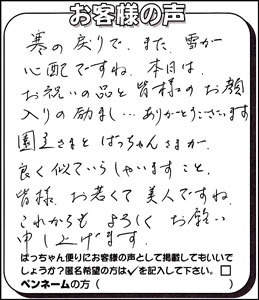 お客様の声
寒の戻りで、また、雪が
心配ですね。本日は、
お祝いの品と皆様のお顔
入りの励まし…ありがとうございます
園主さまとばっちゃんさまが、
良く似ていらしゃいますこと。
皆様、お若くて美人ですね。
これからも よろしく お願い
申し上げます。
ばっちゃん便りにお客様の声として掲載してもいいで
しょうか?匿名希望の方は✓を記入して下さい。□
ペンネームの方( )